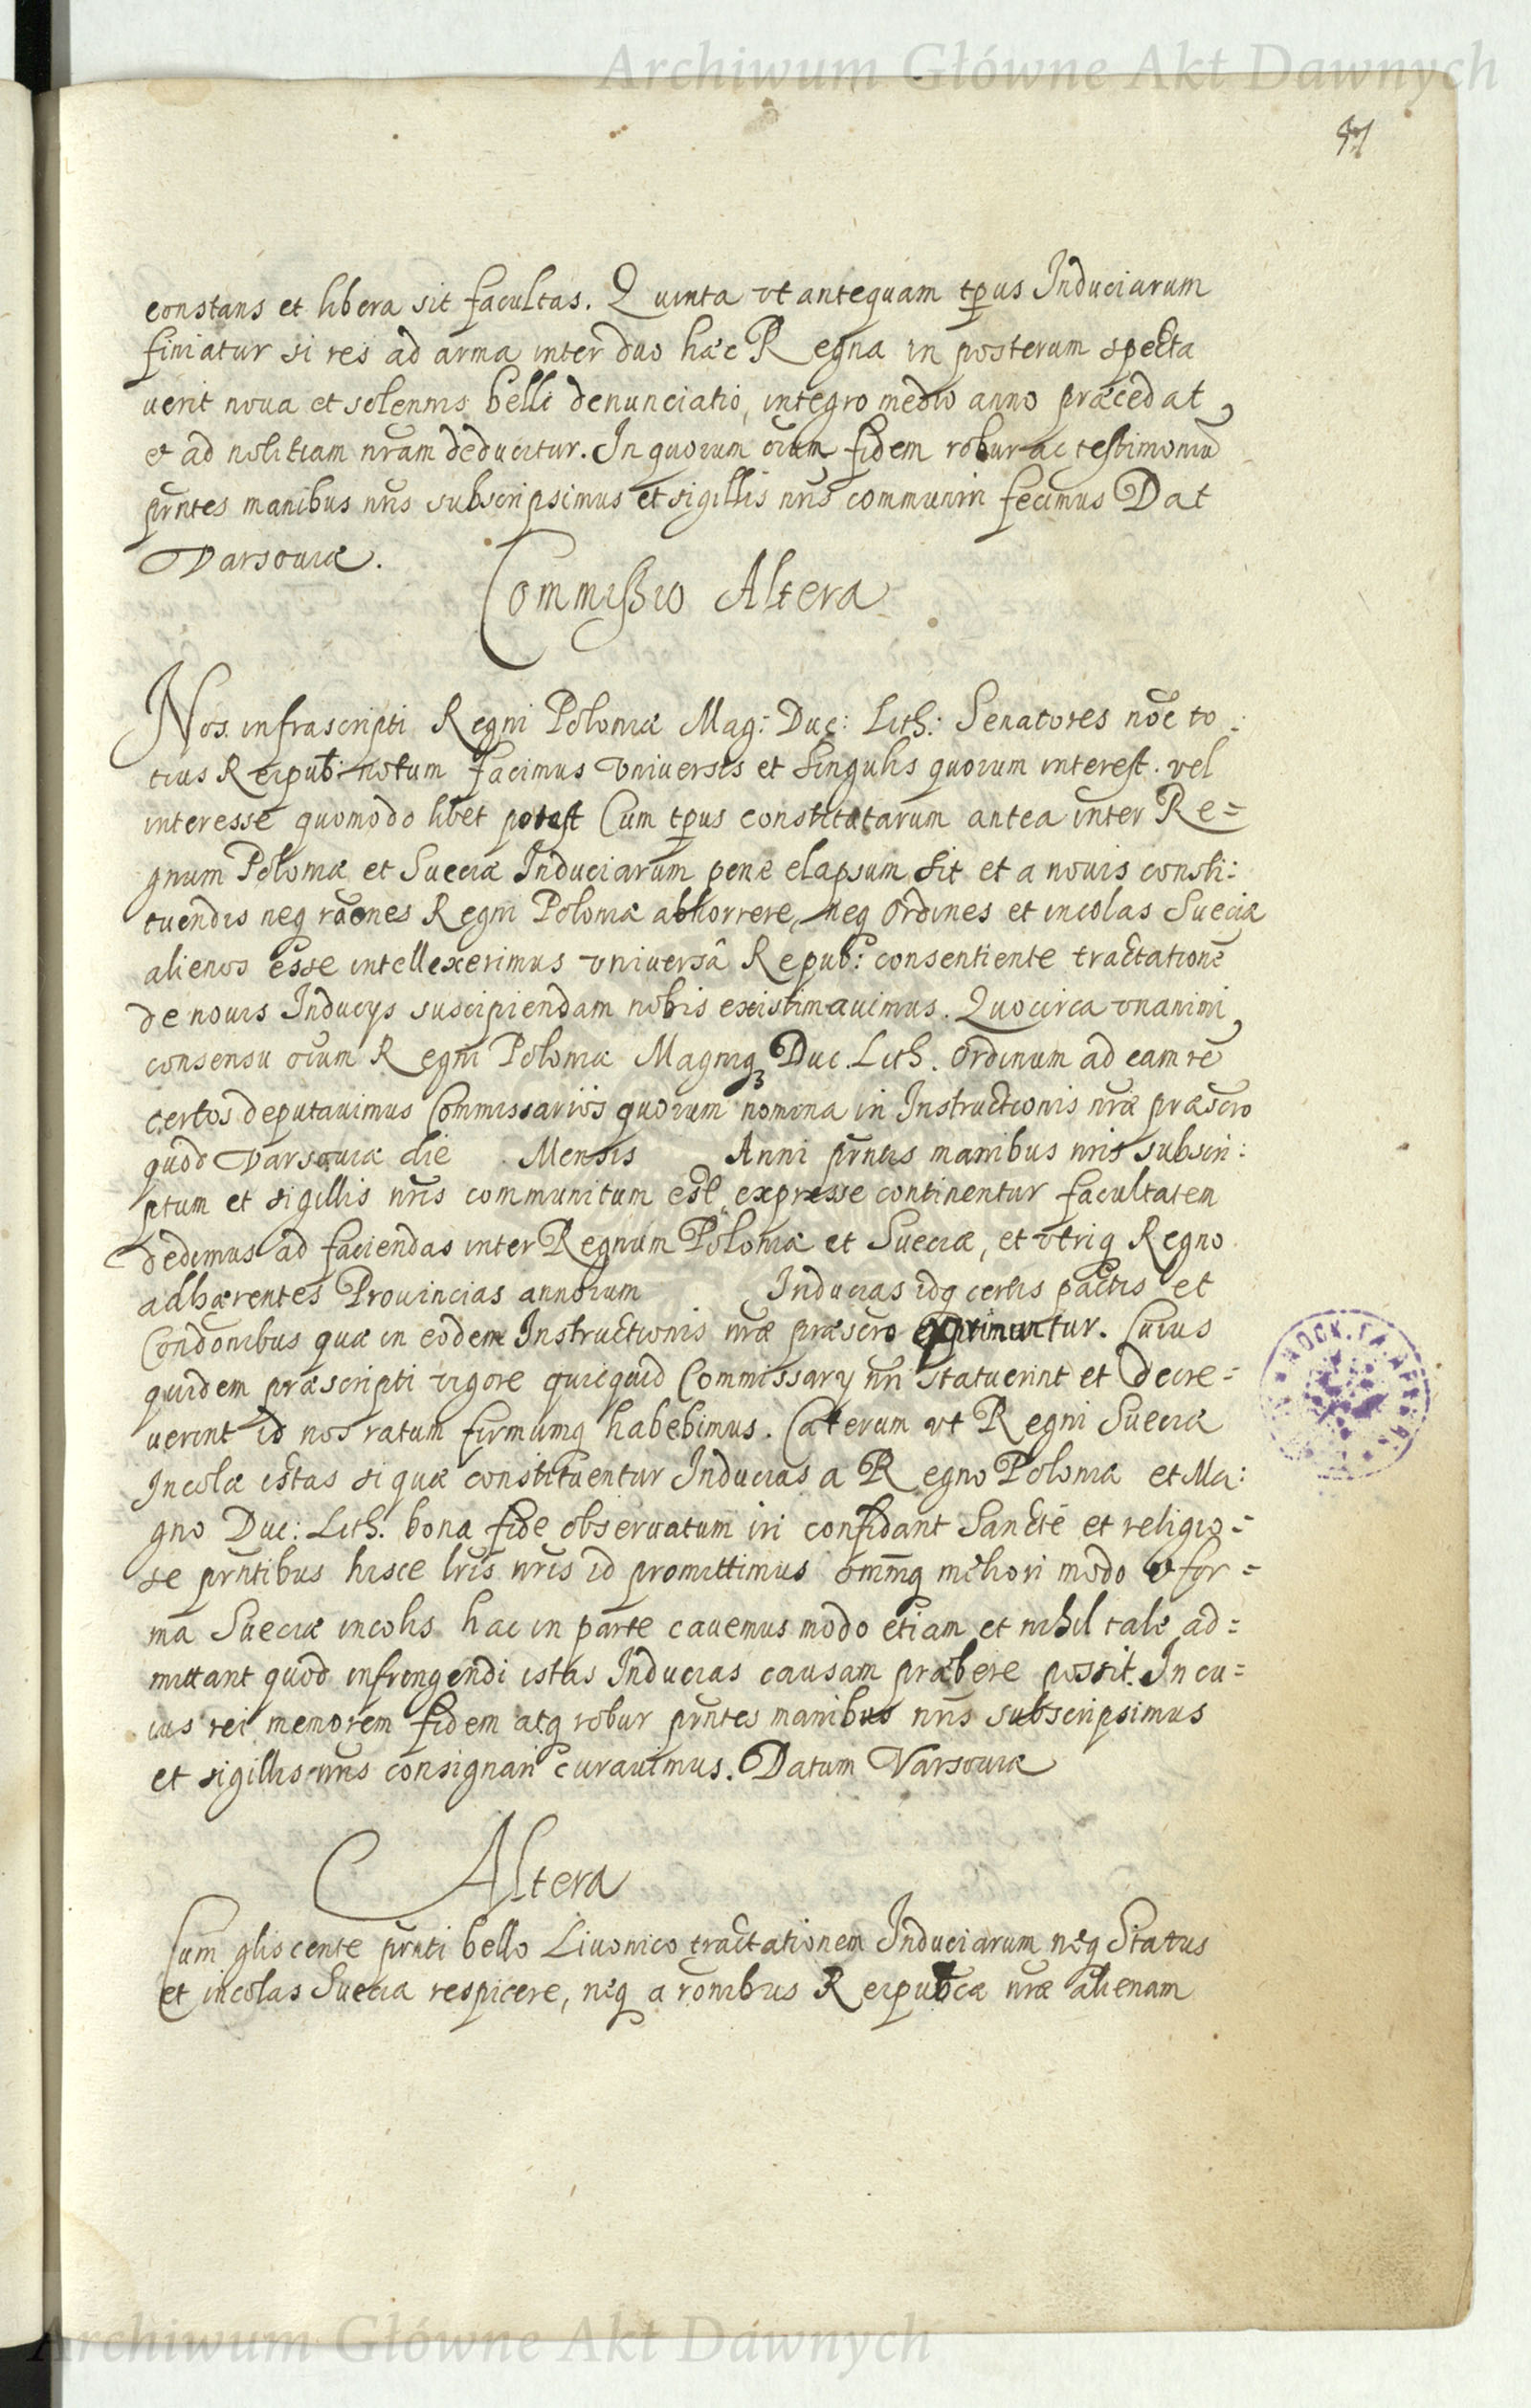 Archiwum Główne Akt Dawnych
constans et libera sit facultas. Quinta vt antequam tp̄us Induciarum
finiatur si res ad arma inter duo hæc Regna in posterum specta
uerit noua et solennis belli denunciatio, integro medio anno præcedat
et ad notitiam nr̄am deducatur. In quorum oi̅um fidem robur ac testimoniū
pn̄ntes manibus nr̄is subscripsimus et sigillis nr̄is communiri fecimus Dat
Varsouiæ.
Commissio Altera
Nos infrascripti Regni Poloniæ Mag: Duc: Lith: Senatores no̅e to:
tius Reipub: notum facimus vniuersis et singulis quorum interest. vel
interesse quomodo libet potest Cum tp̄us constitutarum antea inter Re=
gnum Poloniæ et Sueciæ Induciarum pene elapsum sit et a nouis consti:
tuendis neq ra̅ones Regni Poloniæ abhorrere, neq Ordines et incolas Sueciæ
alienos esse intellexerimus vniuersâ Repub: consentiente tractationē
de nouis Inducys suscipiendam nobis existimauimus. Quocirca vnanimi
consensu oi̅um Regni Poloniæ Magniq₃ Duc. Lith. Ordinum ad eam rē
certos deputauimus Commissarios quorum nomina in Instructionis nr̄æ præscr̄o
quod Varsouiæ die Mensis Anni pn̄ntis manibus nr̄is subscri:
ptum et sigillis nr̄is communitum est expresse continentur facultatem
dedimus ad faciendas inter Regnum Poloniæ et Sueciæ, et vtriq Regno
adhærentes Prouincias annorum Inducias idq certis pactis et
Condo̅nibus quæ in eodem Instructionis nr̄æ præscr̄o exprimuntur. Cuius
quidem præscripti vigore quicquid Commissary nr̄i statuerint et decre=
uerint id nos ratum firmumq habebimus. Cæterum vt Regni Sueciæ
Incolæ istas si quæ constituentur Inducias a Regno Poloniæ et Ma:
gno Duc: Lith. bona fide obseruatum iri confidant Sancte et religio=
se pn̄ntibus hisce lr̄is nr̄is id promittimus omniq meliori modo et for=
ma Sueciæ incolis hac in parte cauemus modo etiam et nihil tale ad=
mittant quod infringendi istas Inducias causam præbere possit. In cu=
ius rei memorem fidem atq robur pn̄ntes manibus nr̄is subscripsimus
et sigillis nr̄is consignari curauimus. Datum Varsouiæ
Altera
Cum gliscente pn̄nti bello Liuonico tractationem Induciarum neq Status
et incolas Sueciæ respicere, neq a ro̅nibus Reipub̄cæ nr̄æ alienam
Archiwum Główne Akt Dawnych